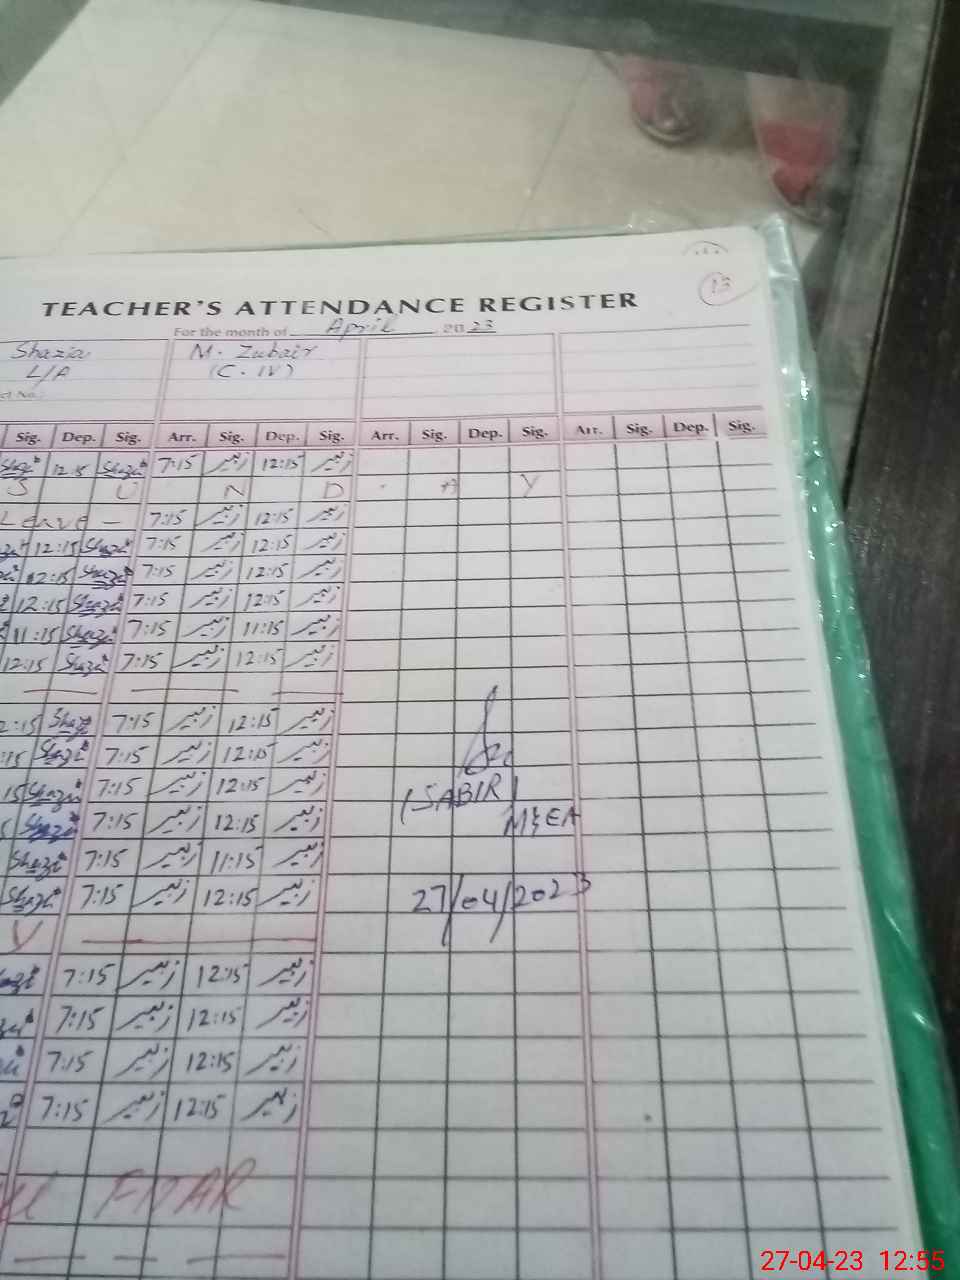 13
TEACHER'S ATTENDANCE REGISTER
For the month of April 2023
Shazia M. Zubair
L/A (C-IV)
ct No.:
Sig. Dep. Sig. Arr. Sig. Dep. Sig. Arr. Sig. Dep. Sig. Arr. Sig. Dep. Sig.
12:15 7:15 زبیر 12:15 زبیر
S U N D A Y
Leave - 7:15 زبیر 12:15 زبیر
12:15 7:15 زبیر 12:15 زبیر
12:15 7:15 زبیر 12:15 زبیر
12:15 7:15 زبیر 12:15 زبیر
11:15 7:15 زبیر 11:15 زبیر
12:15 7:15 زبیر 12:15 زبیر
2:15 7:15 زبیر 12:15 زبیر
:15 7:15 زبیر 12:15 زبیر
15 7:15 زبیر 12:15 زبیر
(SABIR)
5 7:15 زبیر 12:15 زبیر M&EA
7:15 زبیر 11:15 زبیر
7:15 زبیر 12:15 زبیر 27/04/2023
Y
7:15 زبیر 12:15 زبیر
7:15 زبیر 12:15 زبیر
7:15 زبیر 12:15 زبیر
7:15 زبیر 12:15 زبیر
27-04-23 12:55